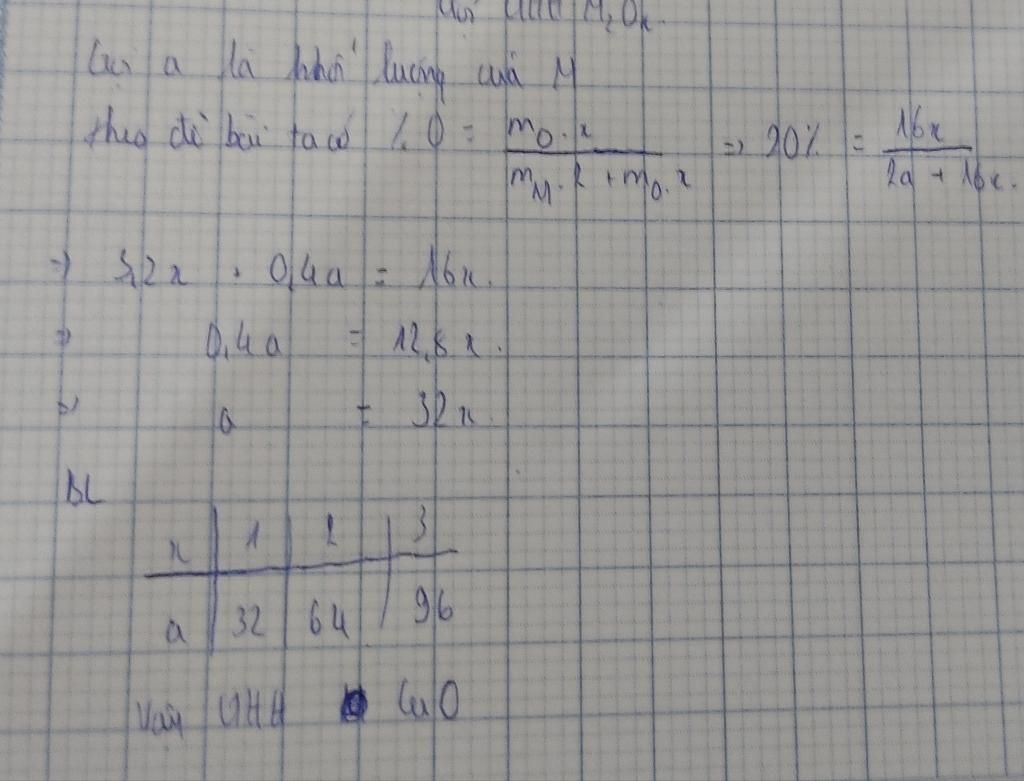 CTHH M₂Oₓ
Gọi a là khối lượng của M
theo đề bài ta có % O = (m_O . x) / (m_M . 2 + m_O . x) => 20% = 16x / (2a + 16x).
=> 3,2x + 0,4a = 16x.
=> 0,4a = 12,8x.
=> a = 32x.
BL
x | 1 | 2 | 3
a | 32 | 64 | 96
Vậy CTHH CuO